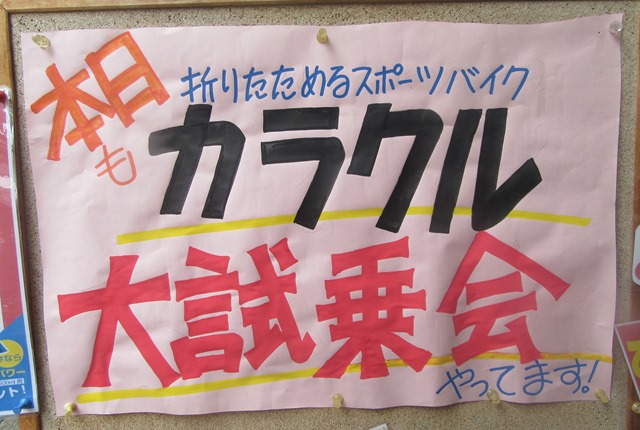 本日も
折りたためるスポーツバイク
カラクル
大試乗会
やってます!
なら
パワー
ント!